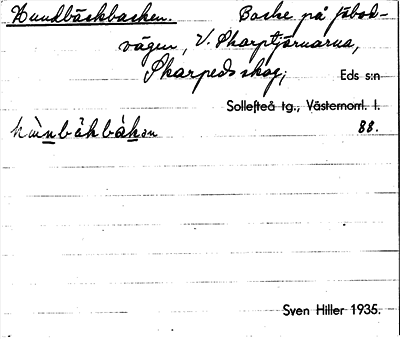 Hundbäckbacken. Backe på fäbod-
vägen, V. Skarptjärnarna,
Skarpeds skog; Eds s:n
Sollefteå tg., Västernorrl. l.
hùnbäkbàkan 88.
Sven Hiller 1935.